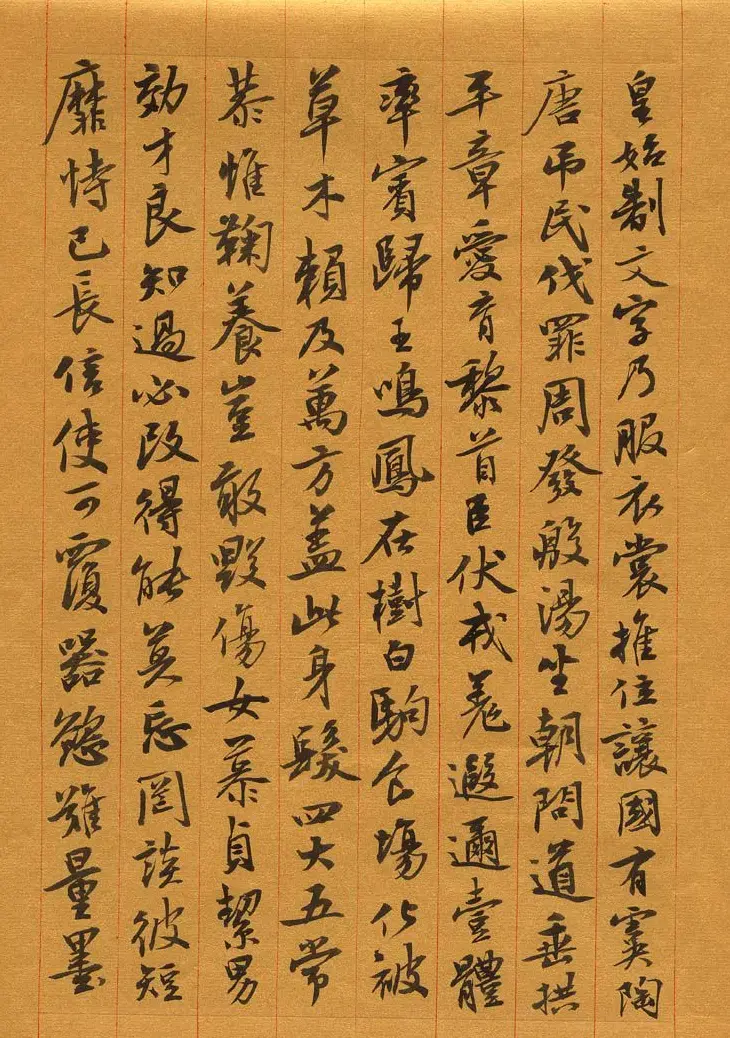 皇始制文字乃服衣裳推位讓國有虞陶
唐弔民伐罪周發殷湯坐朝問道垂拱
平章愛育黎首臣伏戎羌遐邇壹體
率賓歸王鳴鳳在樹白駒食場化被
草木賴及萬方蓋此身髮四大五常
恭惟鞠養豈敢毀傷女慕貞絜男
效才良知過必改得能莫忘罔談彼短
靡恃己長信使可覆器慾難量墨